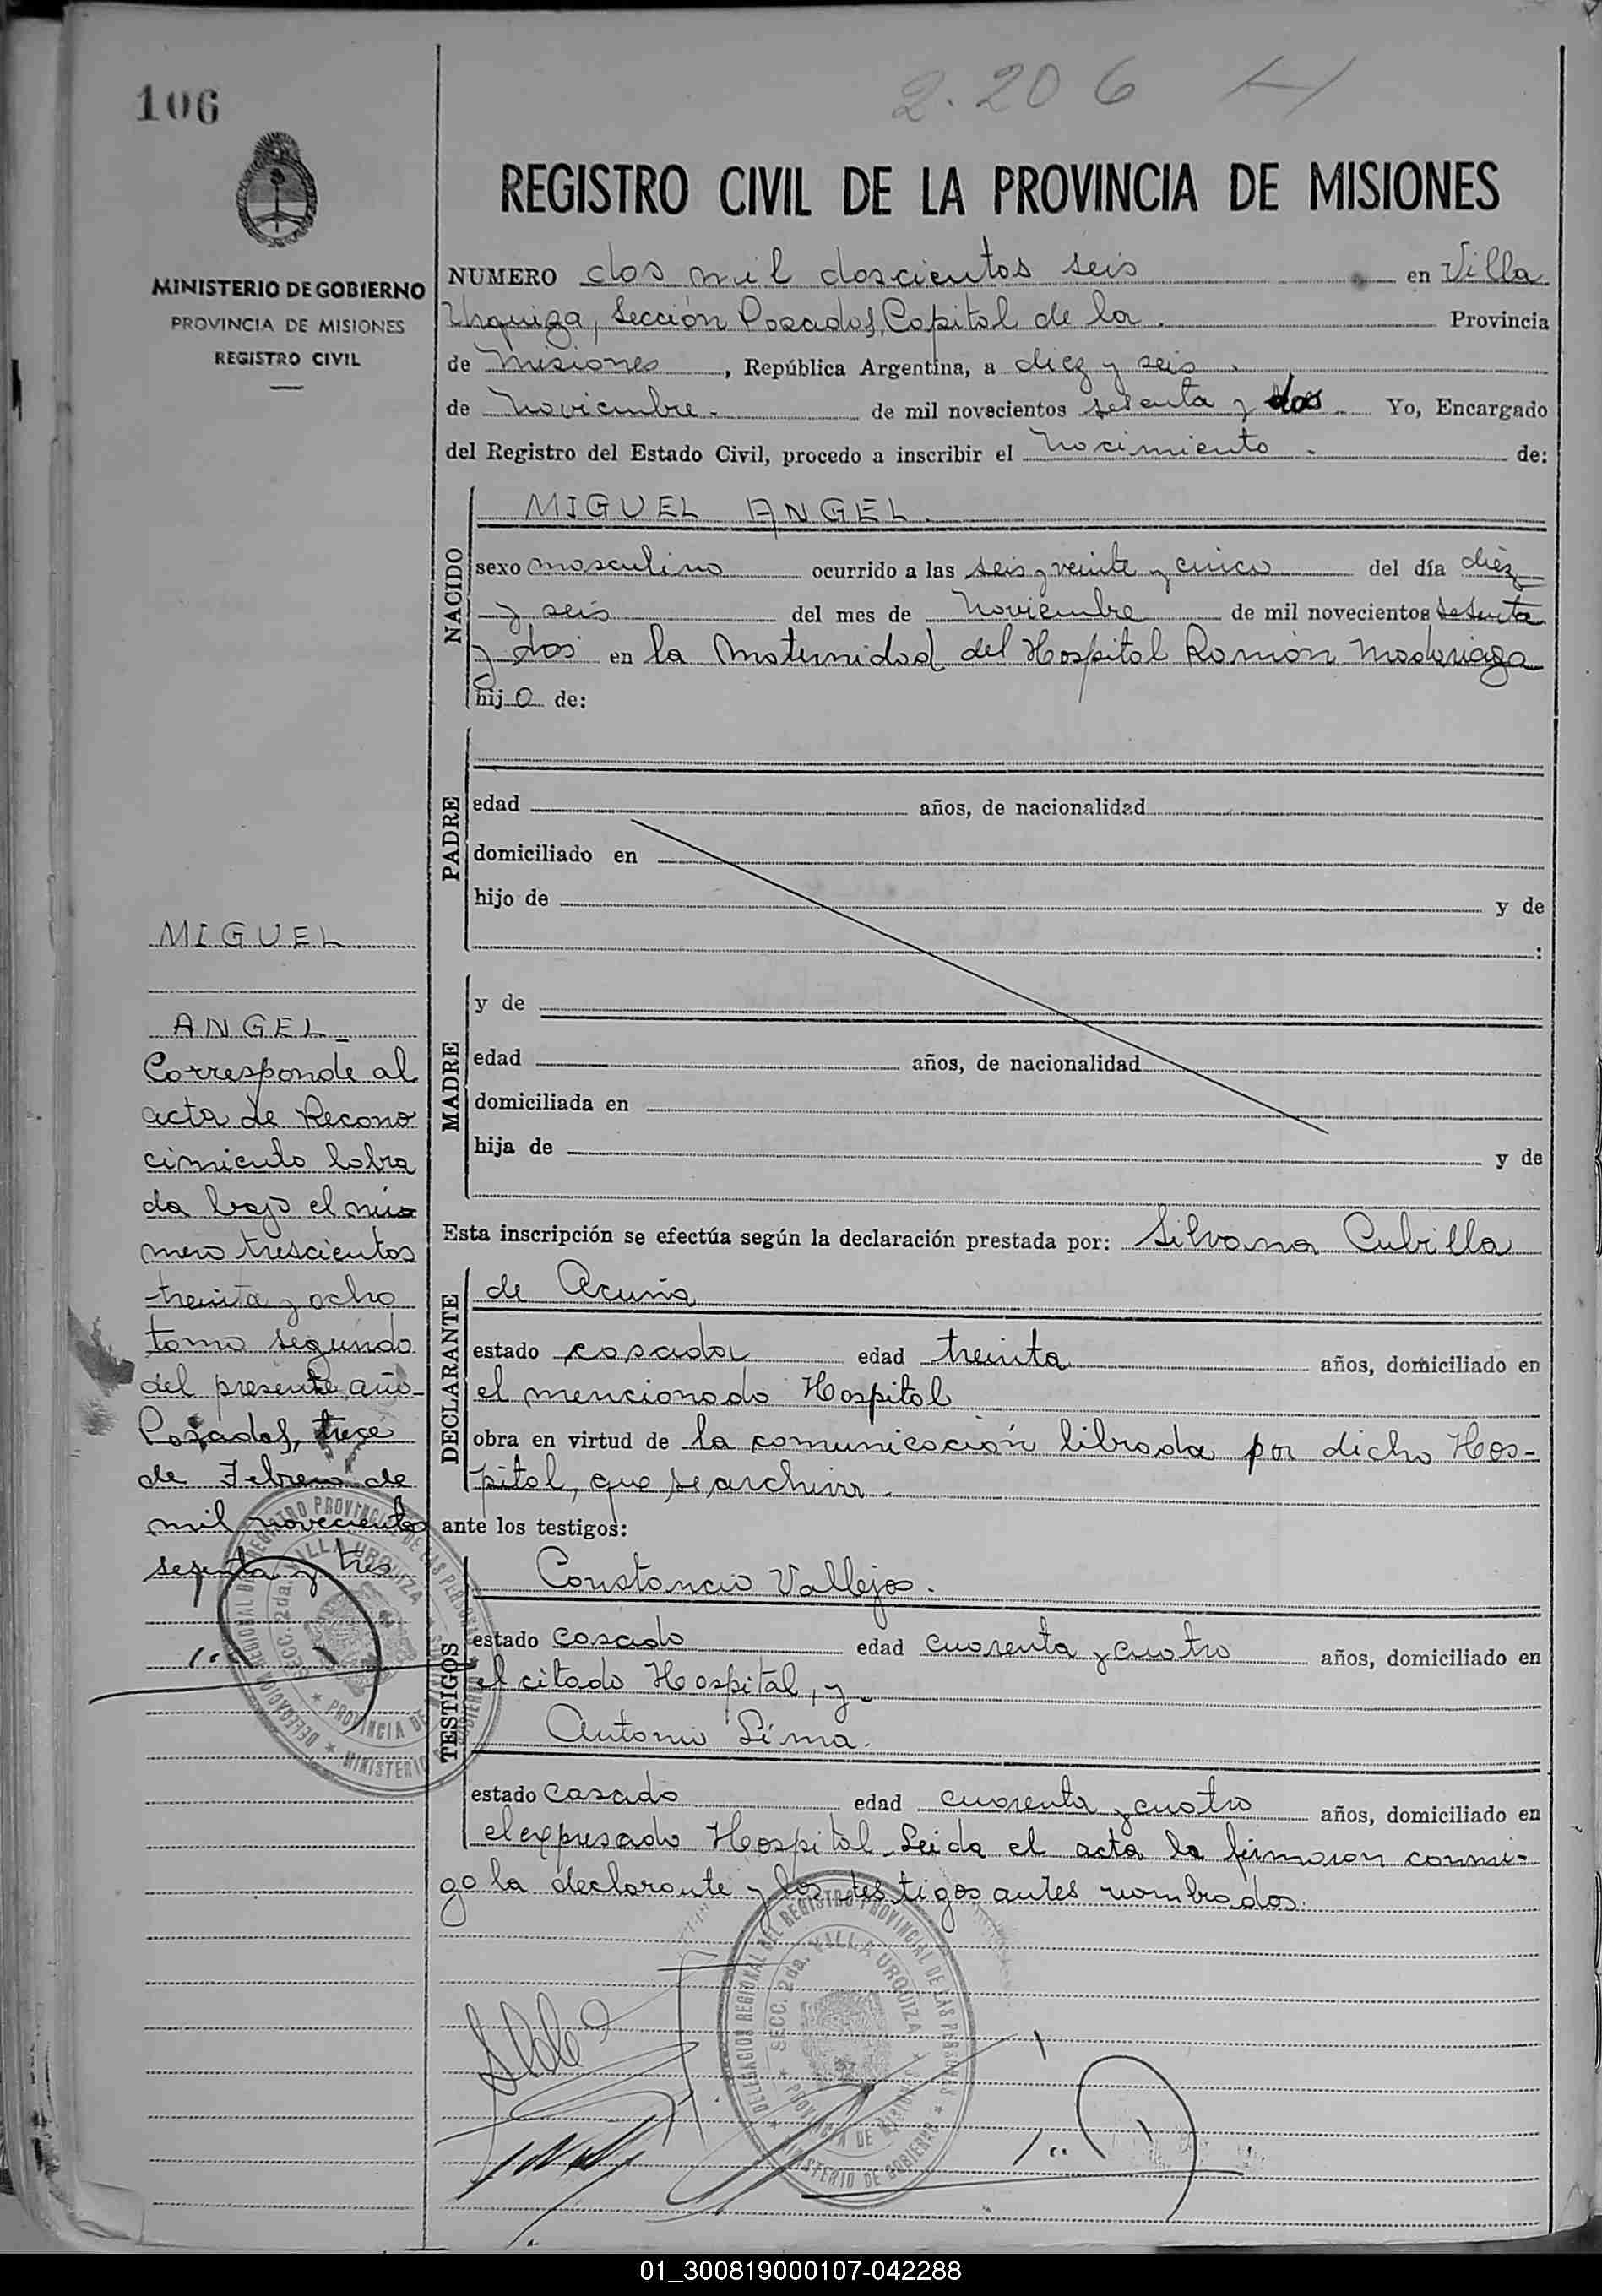 106
2.206
REGISTRO CIVIL DE LA PROVINCIA DE MISIONES
MINISTERIO DE GOBIERNO
PROVINCIA DE MISIONES
REGISTRO CIVIL
NUMERO dos mil doscientos seis en Villa
Urquiza, Sección Posadas, Capital de la. Provincia
de Misiones, República Argentina, a diez y seis.
de Noviembre. de mil novecientos setenta y dos Yo, Encargado
del Registro del Estado Civil, procedo a inscribir el Nacimiento. de:
NACIDO
MIGUEL ANGEL.
sexo masculino ocurrido a las seis y veinte y cinco del día diez
y seis del mes de Noviembre de mil novecientos setenta
y dos en la Maternidad del Hospital Ramón Madariaga
hijo de:
PADRE
edad años, de nacionalidad
domiciliado en
hijo de y de
:
MADRE
y de
edad años, de nacionalidad
domiciliada en
hija de y de
Esta inscripción se efectúa según la declaración prestada por: Silvana Cubilla
DECLARANTE
de Acuña
estado casada edad treinta años, domiciliado en
el mencionado Hospital
obra en virtud de la comunicación librada por dicho Hos-
pital, que se archiva.
ante los testigos:
TESTIGOS
Constancio Vallejos.
estado casado edad cuarenta y cuatro años, domiciliado en
el citado Hospital, y
Antonio Lima.
estado casado edad cuarenta y cuatro años, domiciliado en
el expresado Hospital. Leida el acta la firmaron conmi-
go la declarante y los testigos antes nombrados.
MIGUEL
ANGEL
Corresponde al
acta de Recono
cimiento labra
da bajo el nú
mero trescientos
treinta y ocho
tomo segundo
del presente año
Posadas, trece
de Febrero de
mil novecientos
setenta y tres
DELEGACION REGIONAL DEL REGISTRO PROVINCIAL DE LAS PERSONAS
SECC. 2da. VILLA URQUIZA
PROVINCIA DE
MINISTERIO
DELEGACION REGIONAL DEL REGISTRO PROVINCIAL DE LAS PERSONAS
SECC. 2da. VILLA URQUIZA
PROVINCIA DE MISIONES
MINISTERIO DE GOBIERNO
01_300819000107-042288